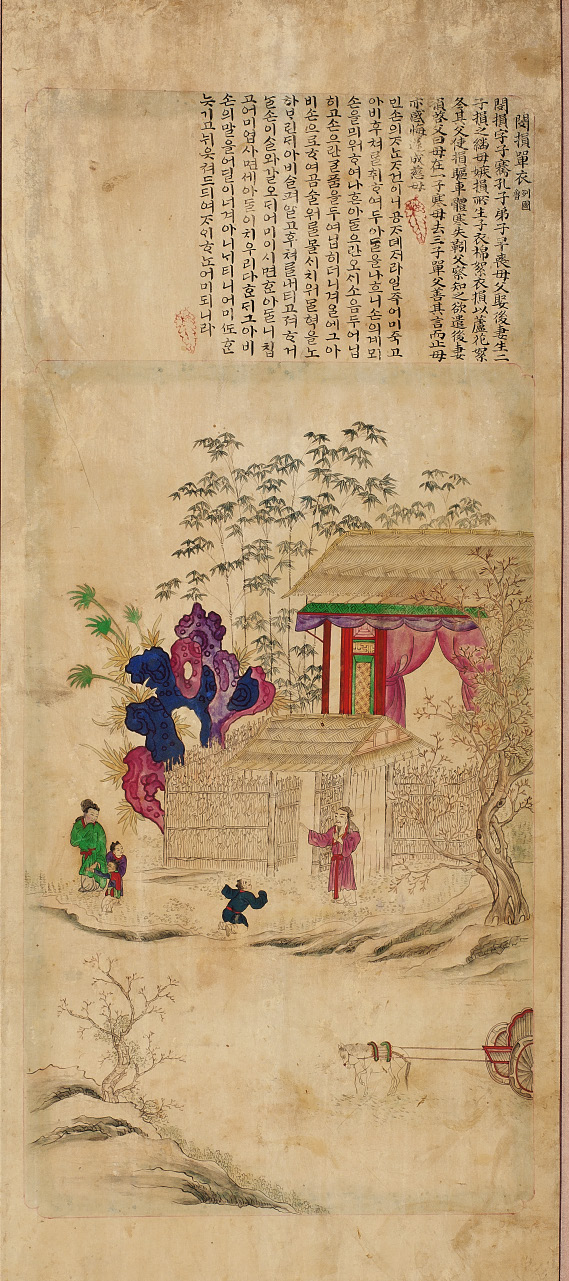 閔損單衣 列國 魯
閔損字子騫孔子弟子早喪母父娶後妻生二
子損之繼母嫉損所生子衣棉絮衣損以蘆花絮
冬其父使損驅車體寒失靷父察知之欲遣後妻
損啓父曰母在一子寒母去三子單父善其言而止母
亦感悔遂成慈母
민손의ᄌᆞᄂᆞᆫᄌᆞ건이니공ᄌᆞ뎨ᄌᆞ라일즉어미죽고
아비후쳐ᄅᆞᆯ취ᄒᆞ여두아ᄃᆞᆯ을나흐니손의계모
손을믜워ᄒᆞ여나흔아ᄃᆞᆯ으란오세소음두어닙
히고손으란ᄀᆞᆯ품을두여닙히더니겨울에그아
비손으로ᄒᆞ여곰술위ᄅᆞᆯ몰ᄉᆡ치위ᄆᆞᆯ혁을노
하ᄇᆞ린ᄃᆡ아비ᄉᆞᆯ펴알고후쳐ᄅᆞᆯ내티고져ᄒᆞ거
ᄂᆞᆯ손이ᄉᆞᆯ와ᄀᆞᆯ오ᄃᆡ어미이시면ᄒᆞᆫ아ᄃᆞᆯ이칩
고어미업사면세아ᄃᆞᆯ이치우리다ᄒᆞᆫᄃᆡ그아비
손의말을어딜이너겨아니내티니어미ᄯᅩᄒᆞᆫ
늣기고뉘웃쳐드ᄃᆡ여ᄌᆞ이ᄒᆞᄂᆞᆫ어미되니라